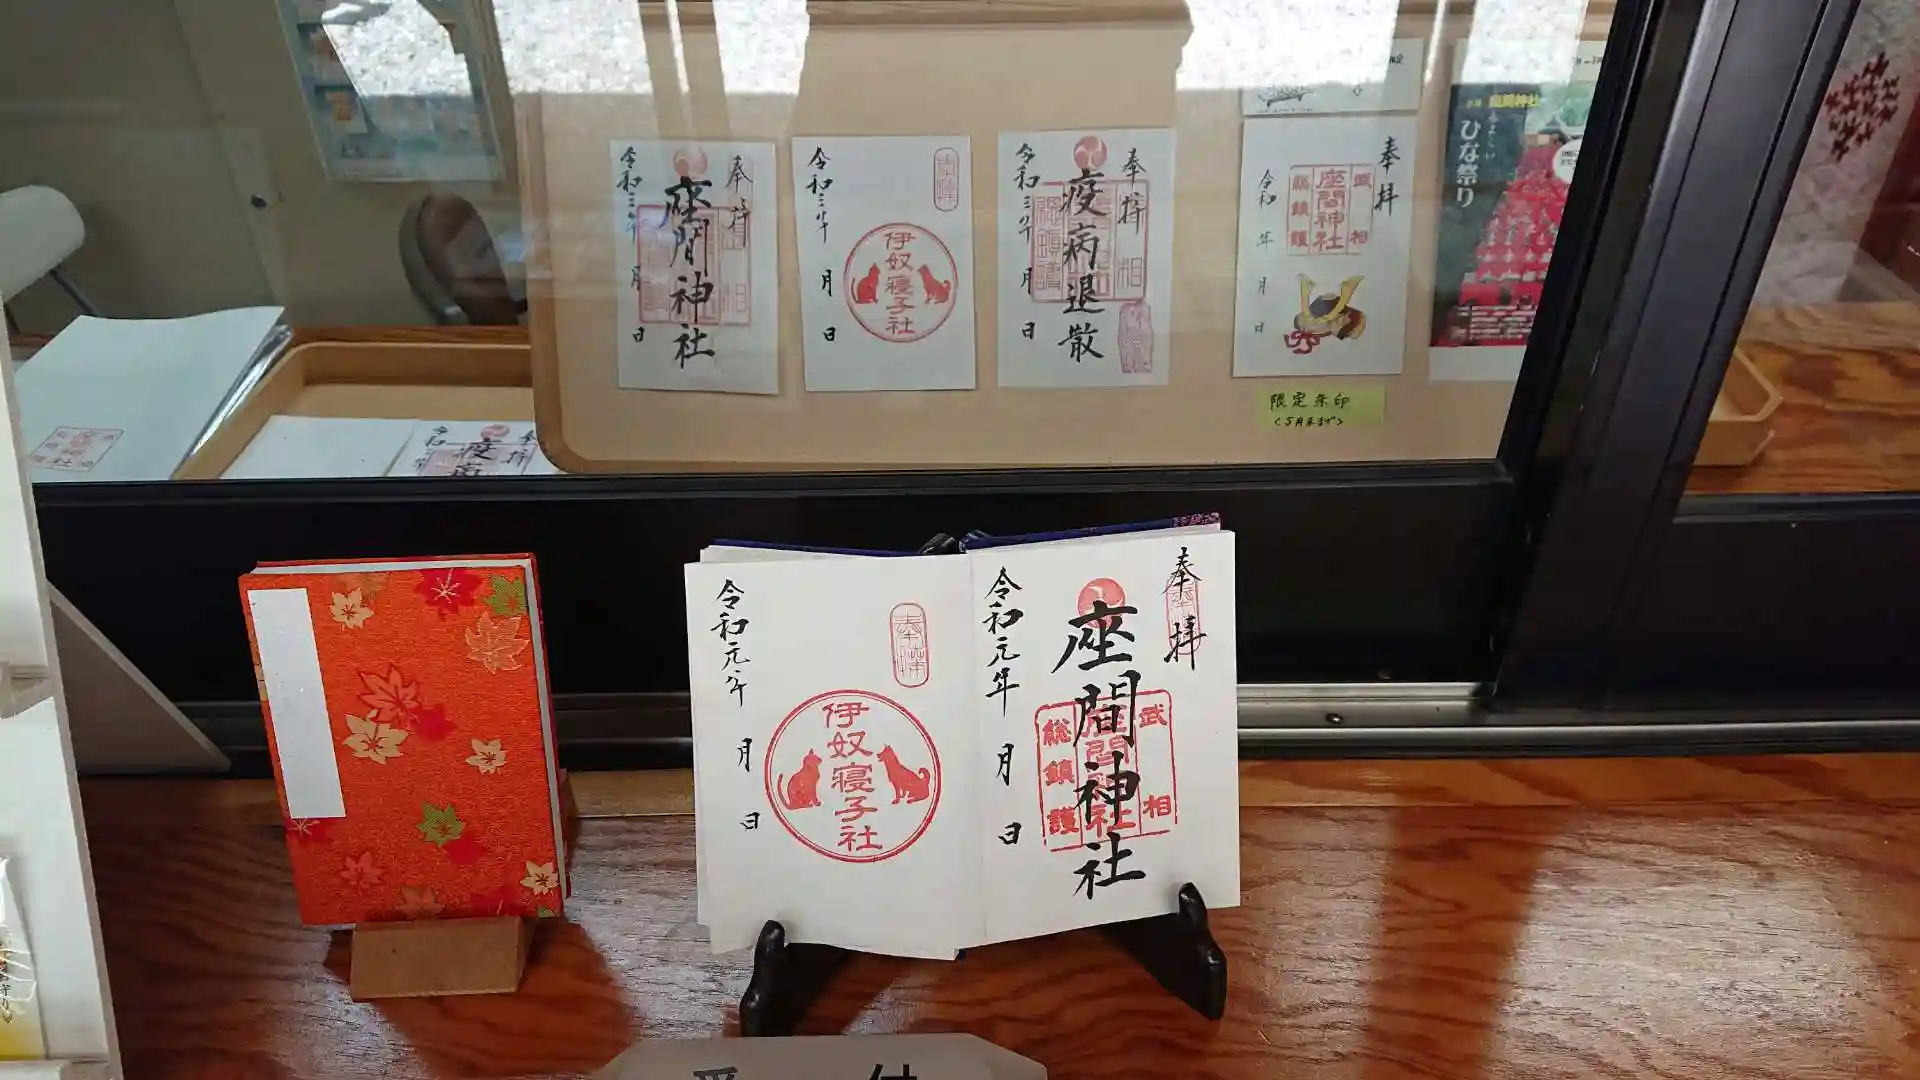 奉拝
座間神社
令和三年
月
日
奉拝
伊奴寝子社
令和三年
月
日
奉拝
疫病退散
相
総鎮護
令和三年
月
日
奉拝
武相
座間神社
総鎮護
令和 年
月
日
限定朱印
<5月末まで>
座間神社
ひな祭り
奉拝
座間神社
武相
総鎮護
令和元年
月
日
奉拝
伊奴寝子社
令和元年
月
日